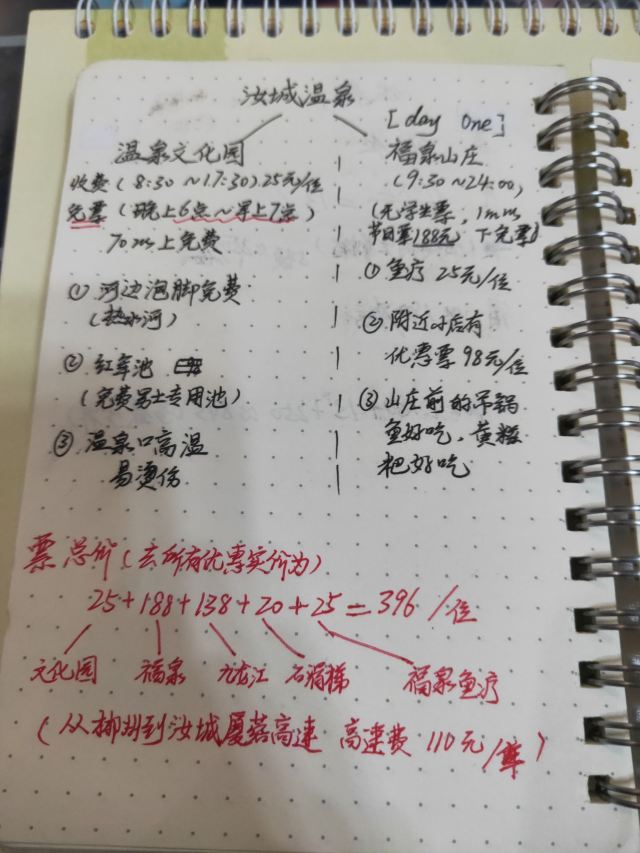 汝城温泉
[day One]
温泉文化园
收费(8:30~17:30)25元/位
免票(晚上6点~早上7点)
70岁以上免费
①河边泡脚免费
(热水河)
②红军池
(免费男士专用池)
③温泉口高温
易烫伤
福泉山庄
(9:30~24:00)
(无学生票,1m
节日票188元)下免票)
①鱼疗 25元/位
②附近 有
优惠票98元/位
③山庄前的吊锅
鱼好吃,黄糍
粑好吃
票总价(去所有优惠实价为)
25+188+138+20+25=396/位
文化园 福泉 九龙江 石滑梯 福泉鱼疗
(从郴州到汝城厦蓉高速 高速费110元/车)